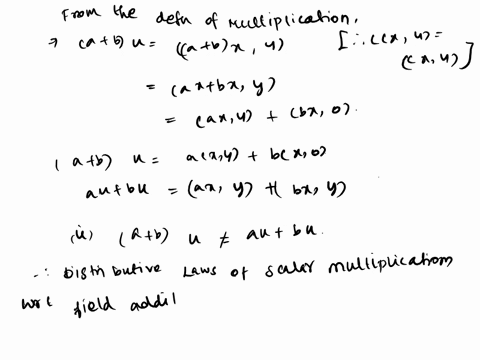 From the defn of multiplication,
⇒ (a+b) u = ((a+b)x, y) [∴ c(x, y) =
(cx, y)]
= (ax+bx, y)
= (ax, y) + (bx, 0).
(a+b) u = a(x,y) + b(x,0)
au+bu = (ax, y) + (bx, y)
(ii) (a+b) u ≠ au + bu.
∴ Distributive Laws of scalar multiplication
wrt field addi